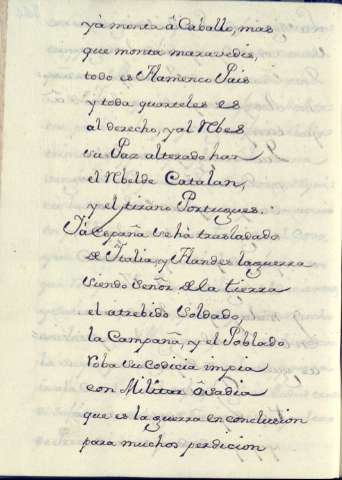 yá monta â Caballo, mas
que monta maravedis,
todo es Flamenco Pais
y toda quarteles es
al derecho, y al Rbes
su Paz alterado han
el Rbelde Catalan,
y el tirano Portugues.
Yá España se há trasladado
de Italia, y Flandes la guerra
siendo Señor de la tierra
el atrebido Soldado,
la Campaña, y el Poblado
roba su codicia impia
con Militar ôsadia
que es la guerra en conclucion
para muchos perdicion